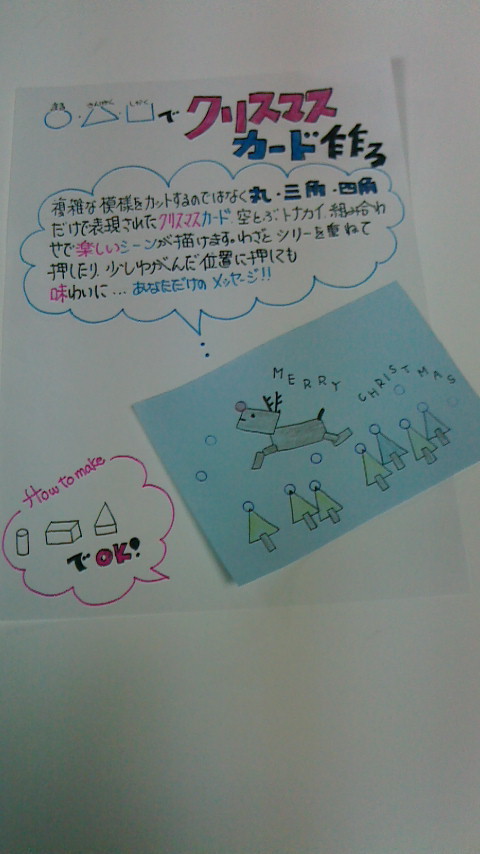 まる さんかく しかく
○・△・□で クリスマス
カード作ろ
複雑な模様をカットするのではなく丸・三角・四角
だけで表現されたクリスマスカード。空とぶトナカイ、組み合わ
せで楽しいシーンが描けます。わざとシリーを重ねて
押したり、少しゆがんだ位置に押しても
味わいに…あなただけのメッセージ!!
MERRY CHRISTMAS
How to make
でOK!